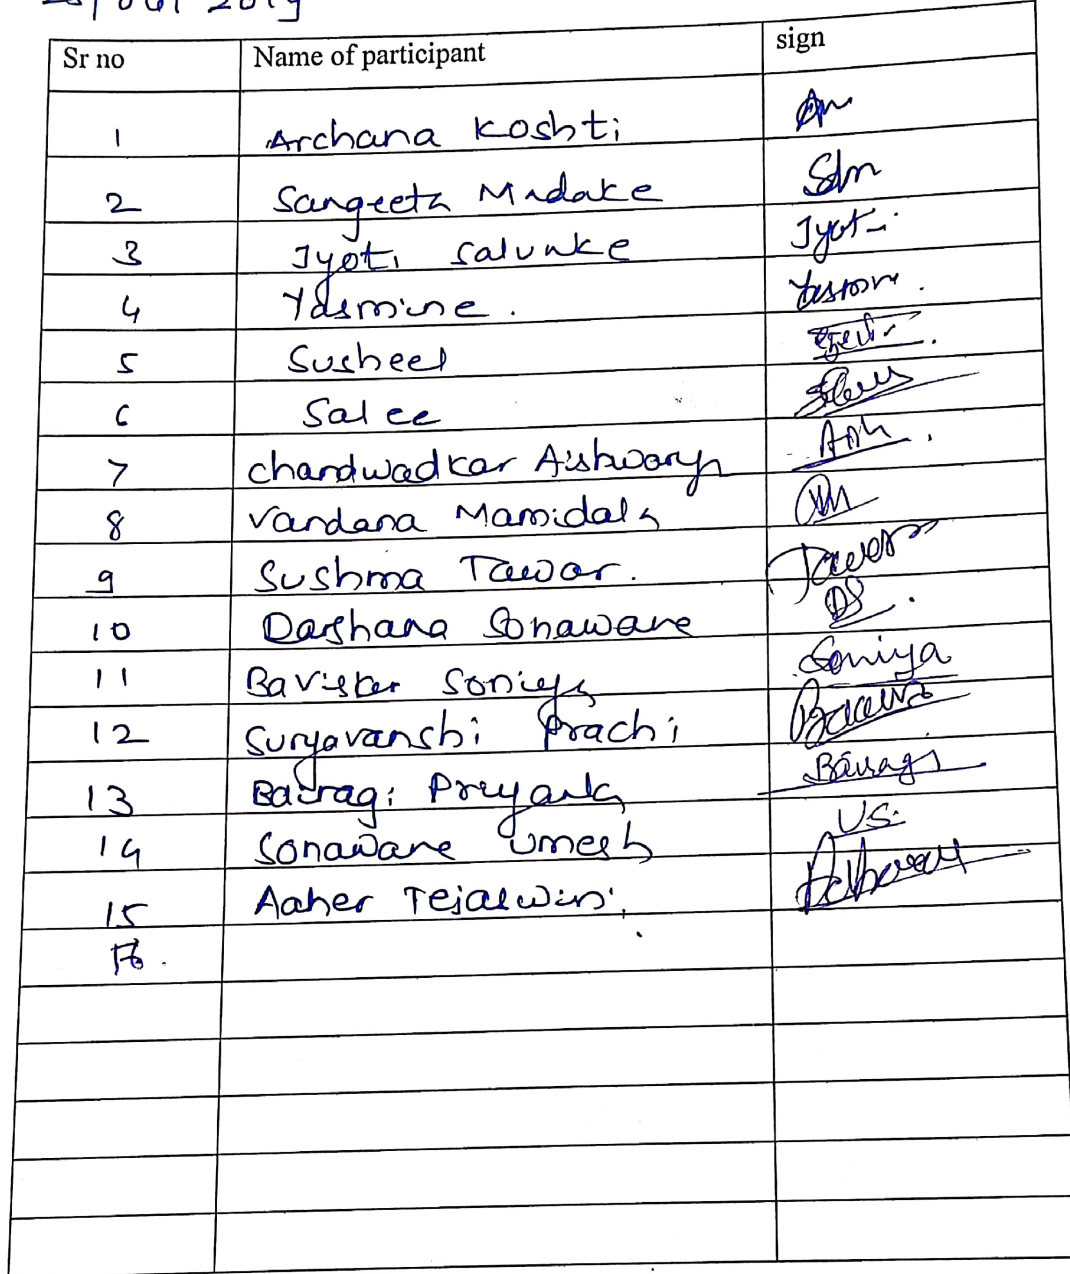 2019
Sr no Name of participant sign
1 Archana Koshti
2 Sangeeta Madake Sdm
3 Jyoti Salunke Jyoti
4 Yasmine.
5 Susheel
6 Salee
7 chandwadkar Aishwarya
8 Vandana Mamidala
9 Sushma Tawar. Tawar
10 Darshana Sonawane DS.
11 Bavisker Soniya Soniya
12 Suryavanshi Prachi
13 Bairagi Priyanka Bairagi
14 Sonawane Umesh US.
15 Aaher
16.